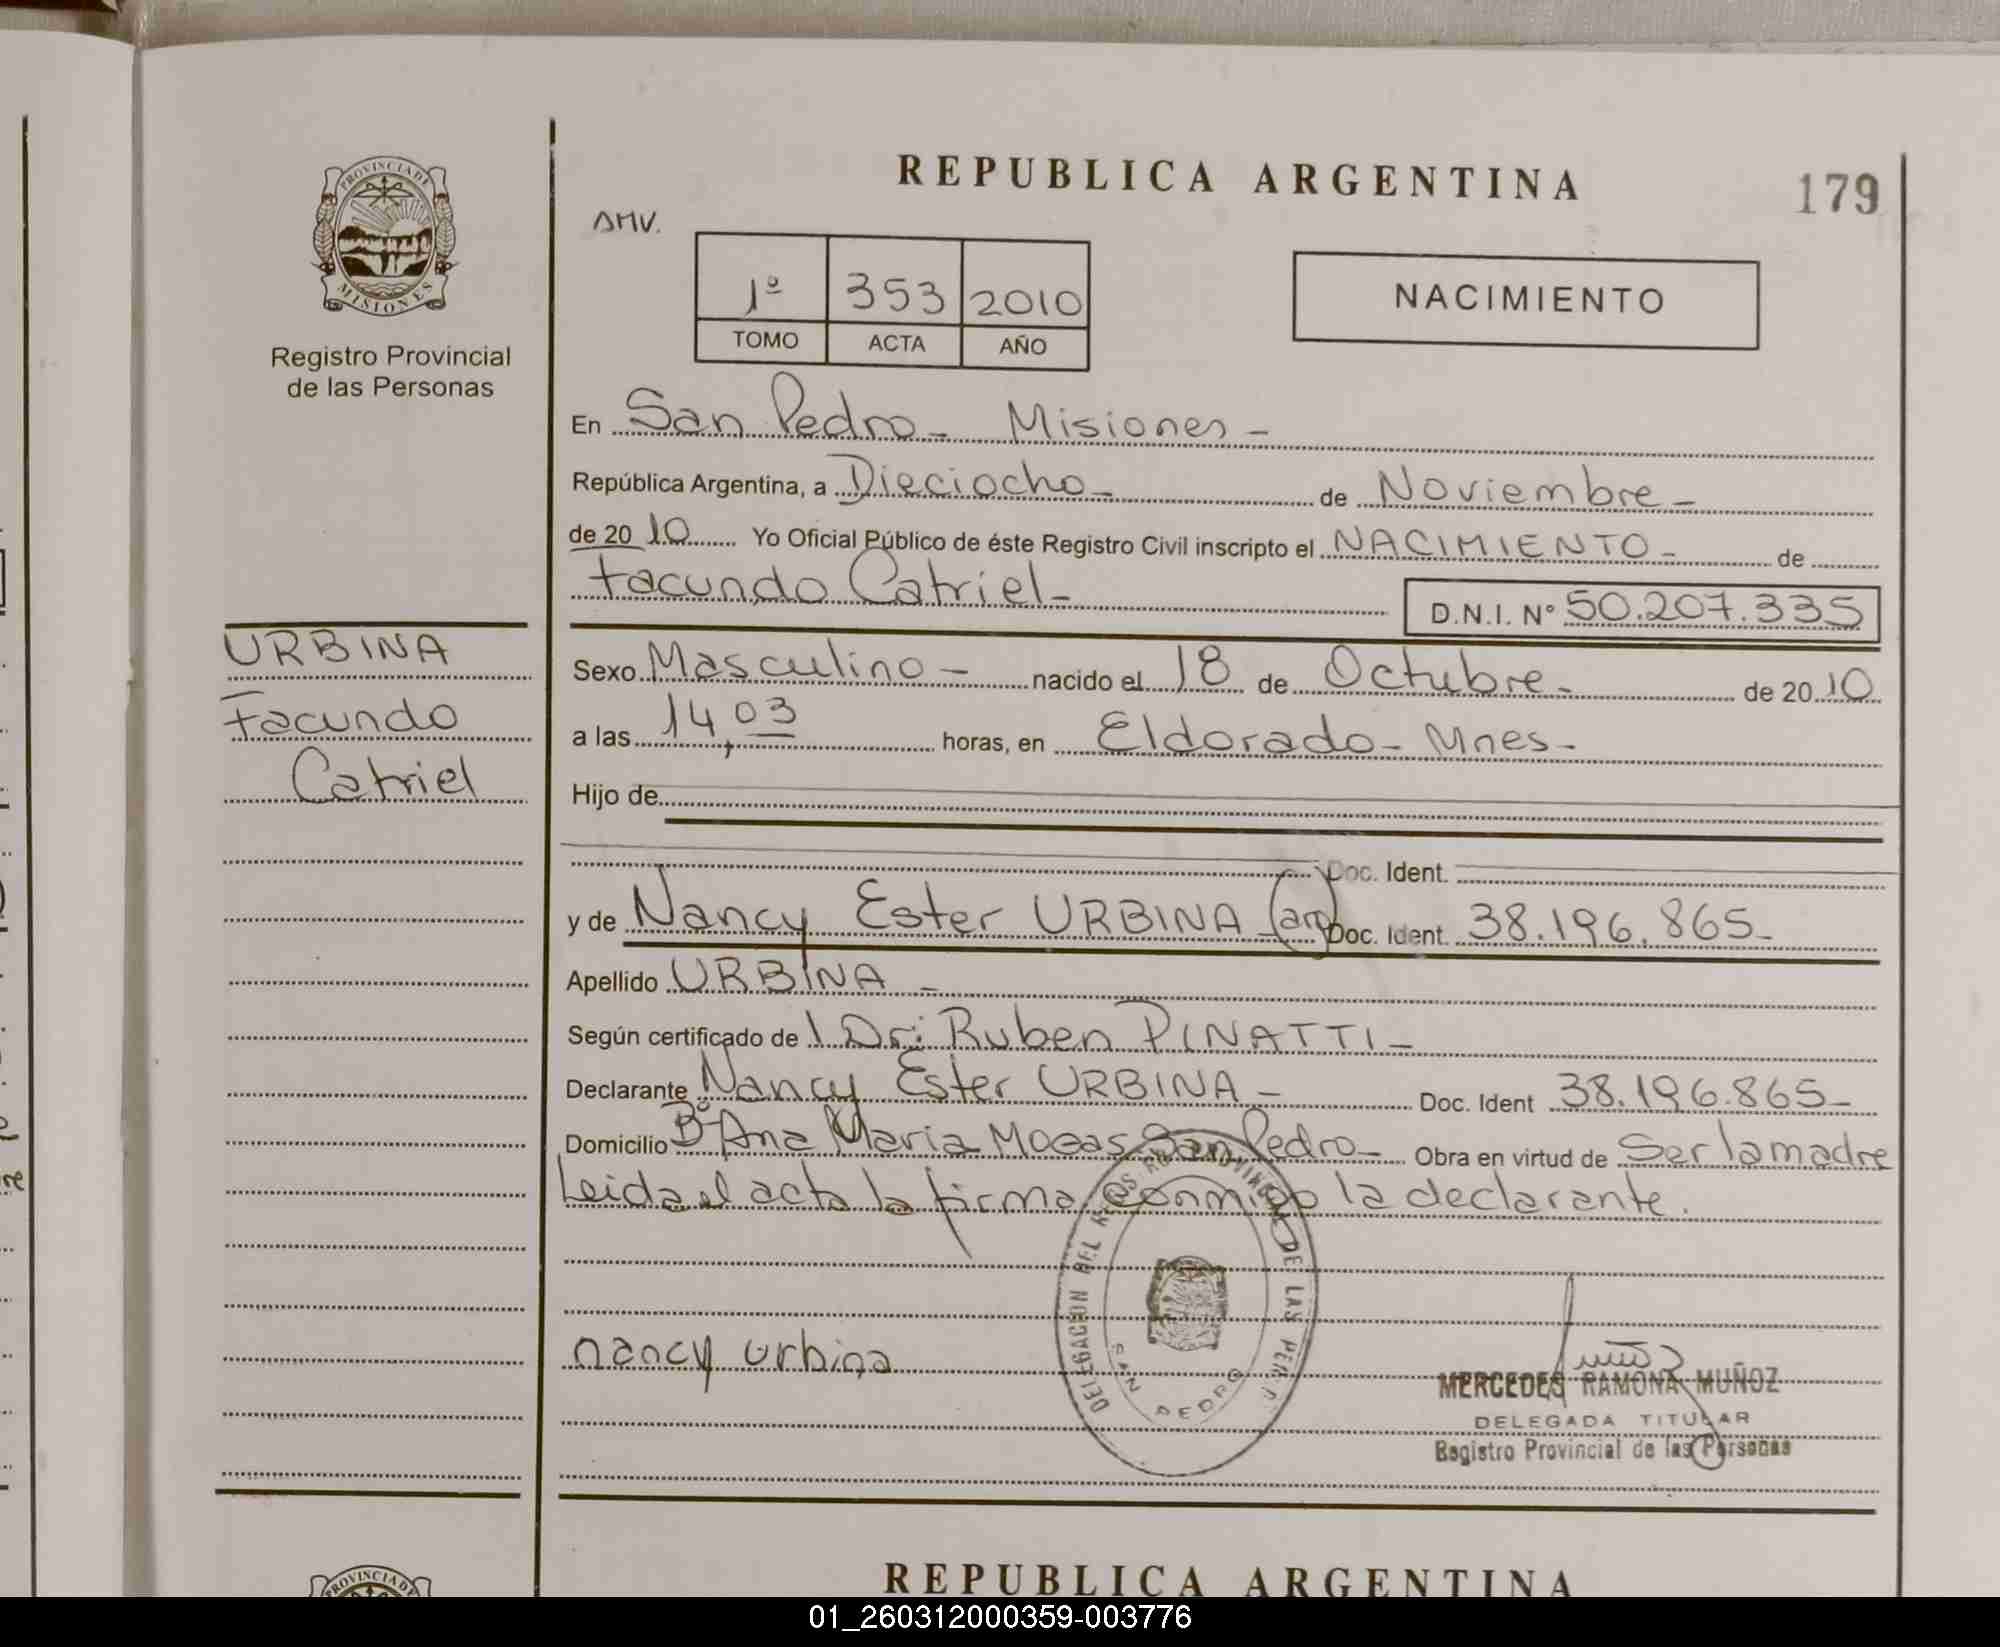 REPUBLICA ARGENTINA
179
PROVINCIA DE
MISIONES
Registro Provincial
de las Personas
AMV.
1º 353 2010
TOMO ACTA AÑO
NACIMIENTO
En San Pedro - Misiones -
República Argentina, a Dieciocho - de Noviembre -
de 20 10 Yo Oficial Público de éste Registro Civil inscripto el NACIMIENTO - de
Facundo Catriel - D.N.I. Nº 50.207.335
URBINA
Facundo
Catriel
Sexo Masculino - nacido el 18 de Octubre - de 20 10
a las 14,03 horas, en Eldorado - Mnes -
Hijo de
Doc. Ident.
y de Nancy Ester URBINA (arg) Doc. Ident. 38.196.865 -
Apellido URBINA -
Según certificado de l Dr: Ruben PINATTI -
Declarante Nancy Ester URBINA - Doc. Ident 38.196.865 -
Domicilio Bº Ana Maria Mogas San Pedro - Obra en virtud de Ser la madre
Leida el acta la firma conmigo la declarante.
DELEGACION DEL PROVINCIAL DE LAS PER
SAN PEDRO
nancy urbina
MERCEDES RAMONA MUÑOZ
DELEGADA TITULAR
Registro Provincial de las Personas
REPUBLICA ARGENTINA
PROVINCIA DE
01_260312000359-003776